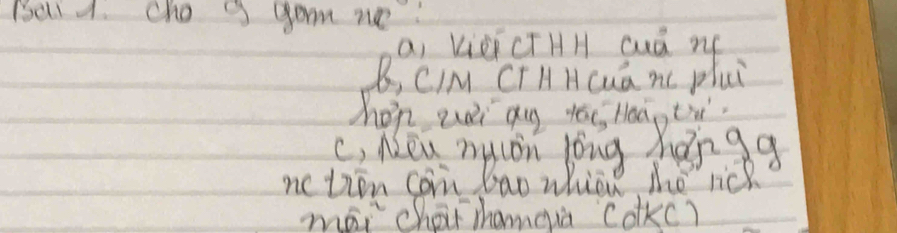 Bài 1. Cho 9 gam nc:
a, Viết CTHH của nc
b, C/M CTHH của nc phù
hợp với quy tắc hoá trị.
c, Nếu muốn tổng hợp 9g
nc trên cần bao nhiêu thể tích
mỗi chất tham gia (đktc)